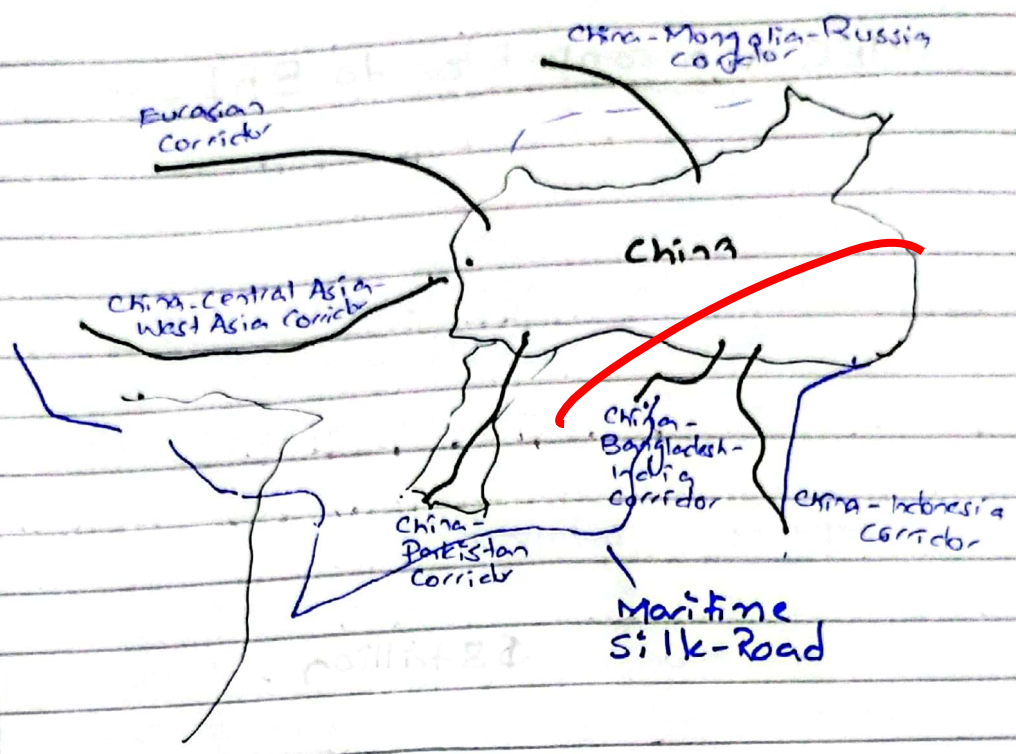 China-Mongolia-Russia
Corridor
Eurasian
Corridor
China
China-Central Asia-
West Asia Corridor
China-
Bangladesh-
India
Corridor
China-Indonesia
Corridor
China-
Pakistan
Corridor
Maritime
Silk-Road